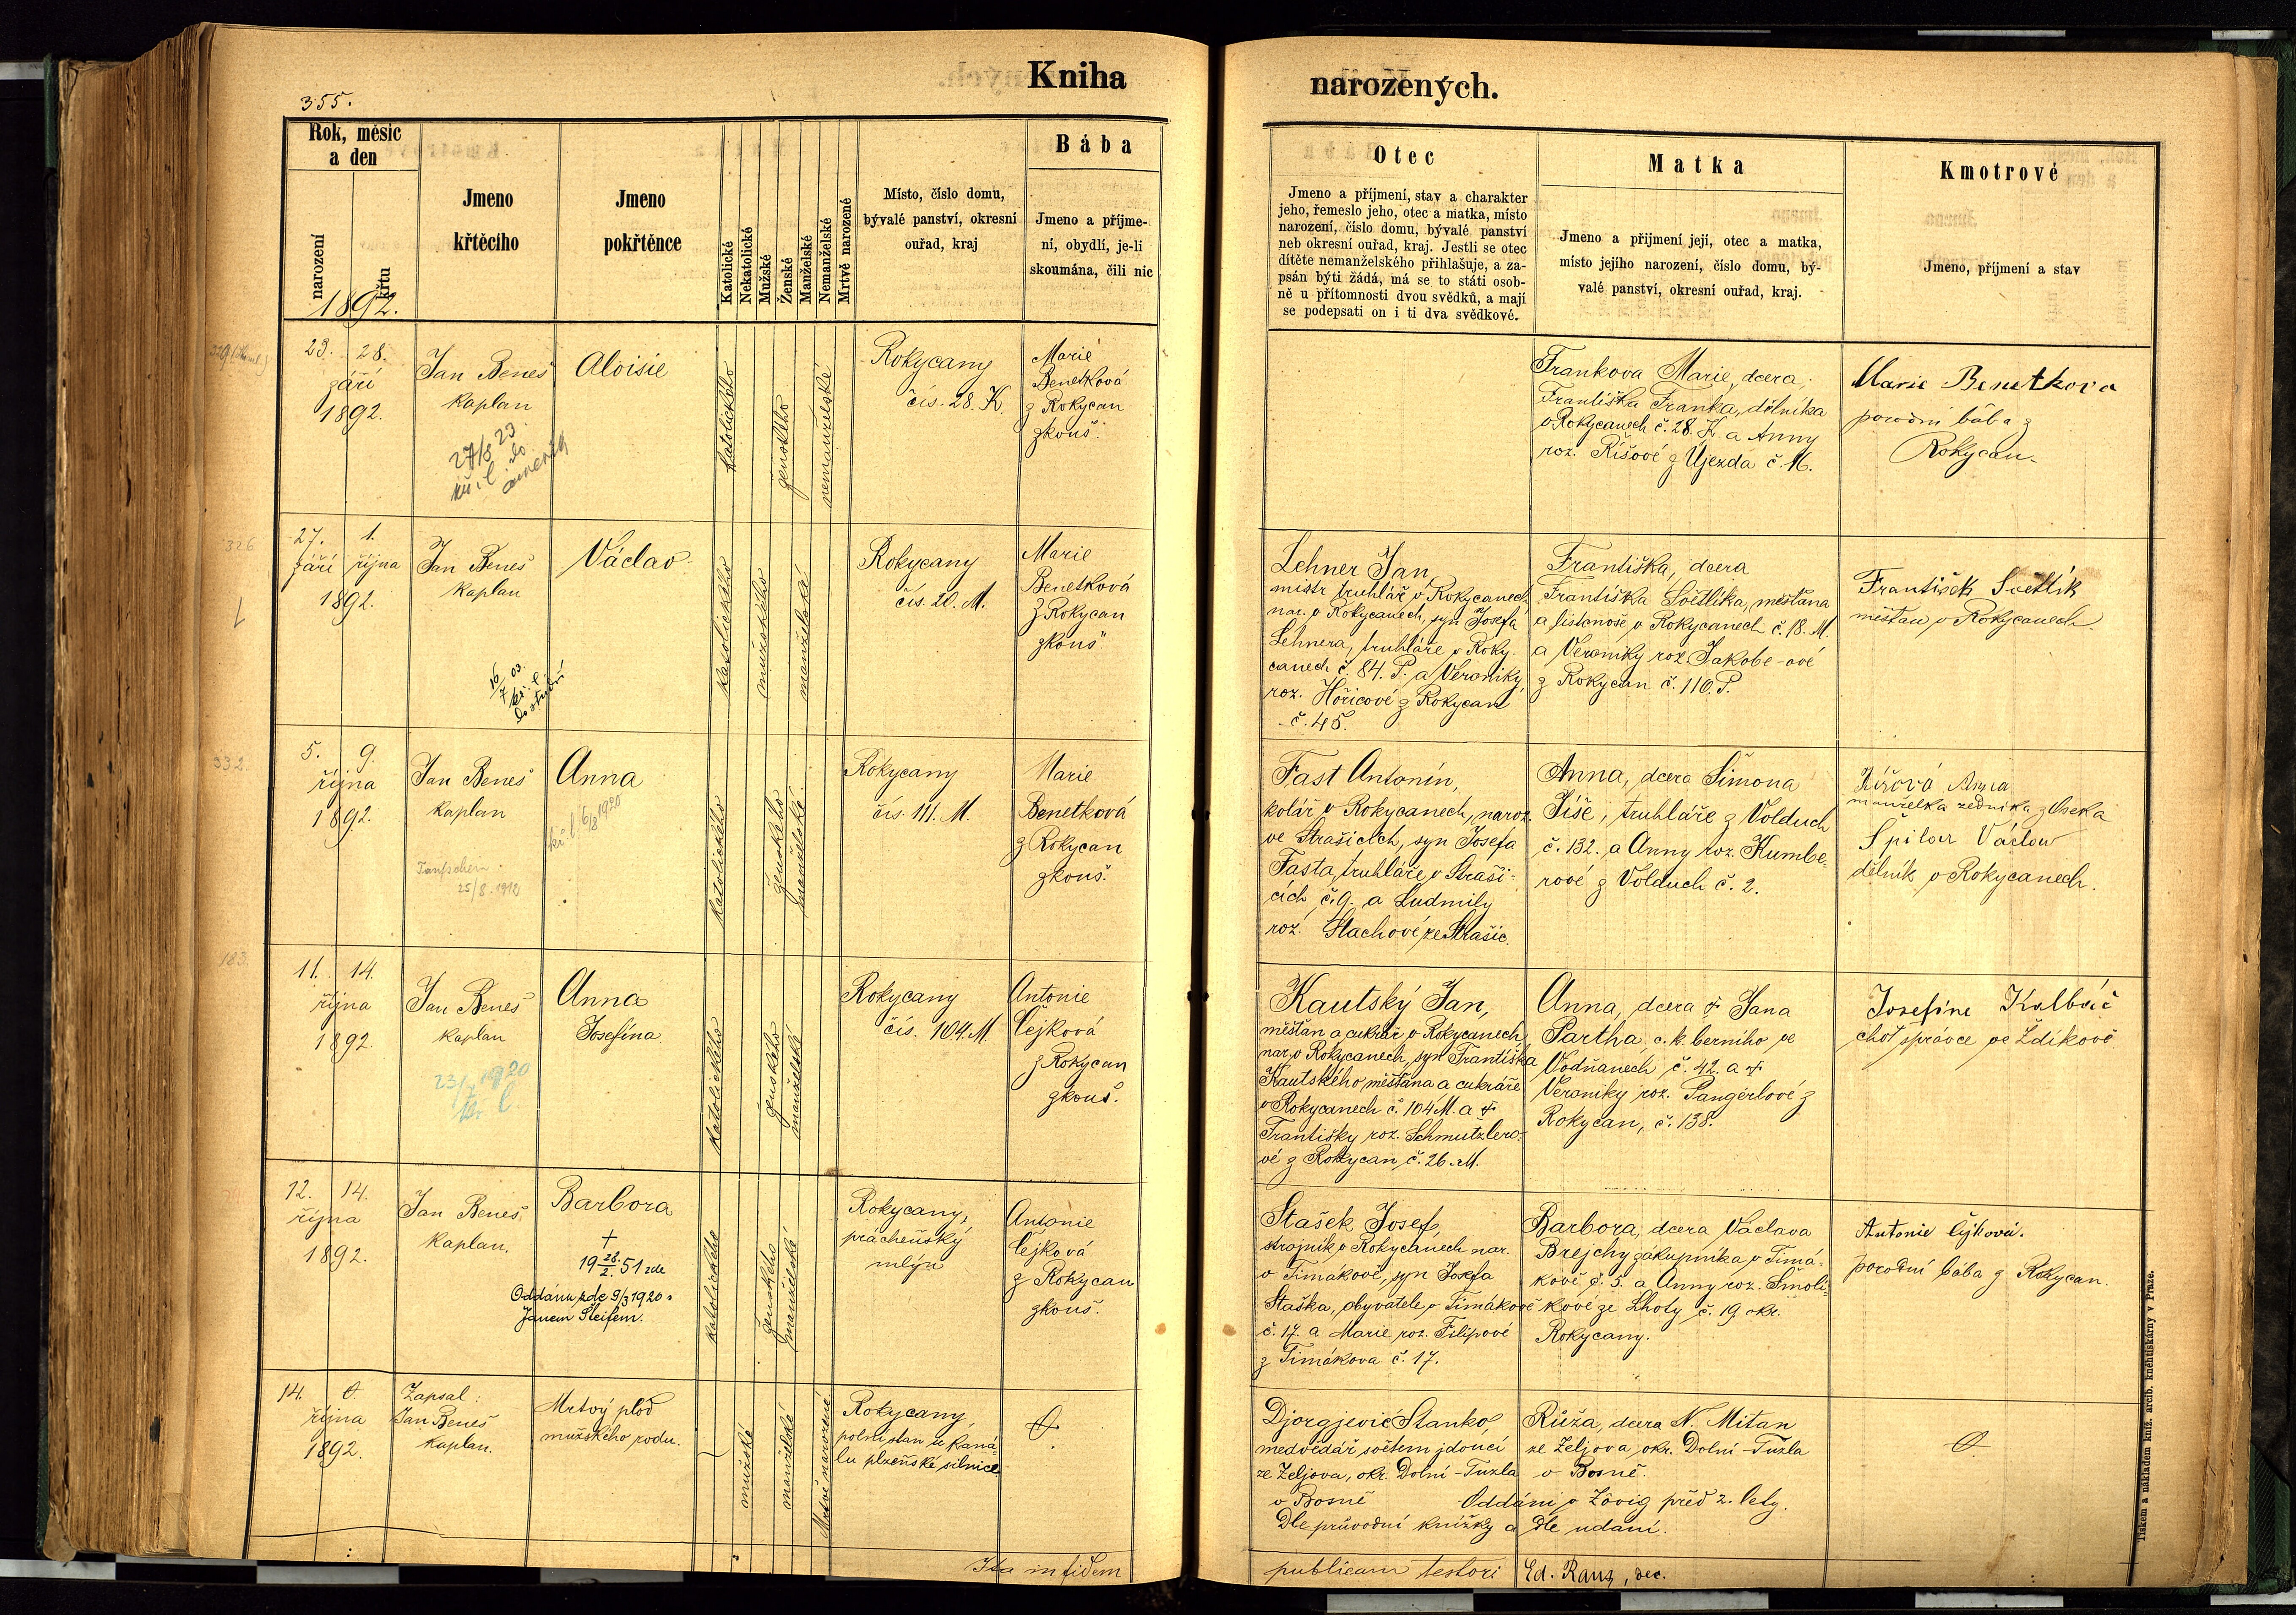 355.
Kniha
narozených.
Rok, měsíc
a den
narození
křtu
1892.
Jmeno
křtěcího
Jmeno
pokřtěnce
Katolické
Nekatolické
Mužské
Ženské
Manželské
Nemanželské
Mrtvě narozené
Místo, číslo domu,
bývalé panství, okresní
ouřad, kraj
Bába
Jmeno a příjme-
ní, obydlí, je-li
skoumána, čili nic
Otec
Jmeno a příjmení, stav a charakter
jeho, řemeslo jeho, otec a matka, místo
narození, číslo domu, bývalé panství
neb okresní ouřad, kraj. Jestli se otec
dítěte nemanželského přihlašuje, a za-
psán býti žádá, má se to státi osob-
ně u přítomnosti dvou svědků, a mají
se podepsati on i ti dva svědkové.
Matka
Jmeno a přijmení její, otec a matka,
místo jejího narození, číslo domu, bý-
valé panství, okresní ouřad, kraj.
Kmotrové
Jmeno, příjmení a stav
23. 28.
září
1892.
Jan Beneš
kaplan
27/8 23
do
Aloisie
katolického
ženského
nemanželské
Rokycany
čís. 28. K.
Marie
Benetková
z Rokycan
zkouš.
Frankova Marie, dcera
Františka Franka, dělníka
v Rokycanech č. 28. K. a Anny
roz. Říšové z Újezda č. 16.
Marie Benetkova
porodní bába z
Rokycan
326
27. 1.
září října
1892.
Jan Beneš
kaplan
16/7 03.
kř. l.
do studií
Václav
katolického
mužského
manželské
Rokycany
čís. 20. M.
Marie
Benetková
z Rokycan
zkouš
Lehner Jan,
mistr truhlář v Rokycanech,
nar. v Rokycanech, syn Josefa
Lehnera, truhláře v Roky-
canech č. 84. P. a Veroniky,
roz. Hořicové z Rokycan
č. 45.
Františka, dcera
Františka Světlíka, měšťana
a listonoše v Rokycanech č. 18. M.
a Veroniky roz. Jakobe-ové
z Rokycan č. 110. P.
František Světlík
měšťan v Rokycanech.
332.
5. 9.
října
1892.
Jan Beneš
kaplan
Taufschein
25/8. 1912
Anna
kř. l. 6/8 1920
katolického
ženského
manželské
Rokycany
čís. 111. M.
Marie
Benetková
z Rokycan
zkouš.
Fast Antonín,
kolář v Rokycanech, naroz.
ve Strašicích, syn Josefa
Fasta, truhláře v Straši-
cích č. 9. a Ludmily
roz. Stachové ze Strašic.
Anna, dcera Šimona
Jíše, truhláře z Volduch
č. 132. a Anny roz. Kumbe-
rové z Volduch č. 2.
Anna
manželka zedníka z Oseka
Spilar Václav
dělník v Rokycanech.
183.
11. 14.
října
1892.
Jan Beneš
kaplan
Anna
Josefína
katolického
ženského
manželské
Rokycany
čís. 104. M.
Antonie
Čejková
z Rokycan
zkouš.
Kautský Jan,
měšťan a cukrář v Rokycanech,
nar. v Rokycanech, syn Františka
Kautského, měšťana a cukráře
v Rokycanech č. 104 M. a †
Františky roz. Schmutzlero-
vé z Rokycan č. 26. M.
Anna, dcera † Jana
Partha, c. k. berního ve
Vodňanech č. 42. a †
Veroniky roz. Pangerlové z
Rokycan, č. 138.
Josefine Kalbáč
choť správce ve Zdíkově
12. 14.
října
1892.
Jan Beneš,
kaplan.
Barbora
†
19 28./2. 51 zde
Oddána zde 9/3 1920 s
Janem Šleifem.
katolického
ženského
manželské
Rokycany,
prácheňský
mlýn
Antonie
Čejková
z Rokycan
zkouš.
Stašek Josef,
strojník v Rokycanech nar.
v Timákově, syn Josefa
Staška, obyvatele v Timákově
č. 17. a Marie roz. Filipové
z Timákova č. 17.
Barbora, dcera Václava
Brejchy zákupníka v Timá-
kově č. 5. a Anny roz. Smolí-
kové ze Lhoty č. 19. okr.
Rokycany.
Antonie Čejková.
porodní bába z Rokycan.
14. 0.
října
1892.
Zapsal:
Jan Beneš
kaplan.
Mrtvý plod
mužského rodu.
mužské
manželské
Mrtvě narozené
Rokycany,
polní stan u kaná-
lu plzeňské silnice.
0.
Djorgjević Stanko,
medvědář světem jdoucí
ze Zeljova, okr. Dolní-Tuzla
v Bosně
Růža, dcera N. Mitan
ze Zeljova, okr. Dolní-Tuzla
v Bosně.
Oddáni v Zóvig před 2. lety.
Dle průvodní knížky a dle udání.
0.
Ita in fidem
publicam testori Ed. Rauz, dec.
Tiskem a nákladem kníž. arcib. kněhtiskárny v Praze.